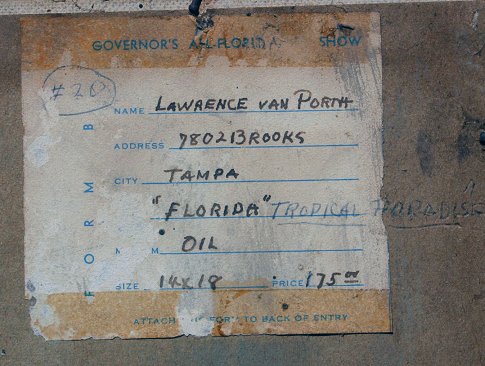 GOVERNOR'S ALL-FLORIDA SHOW
#20
NAME LAWRENCE VAN PORTH
ADDRESS 7802 BROOKS
CITY TAMPA
"FLORIDA" TROPICAL PARADISE
M M OIL
SIZE 14X18 PRICE 175.00
ATTACH THIS FORM TO BACK OF ENTRY
FORM B